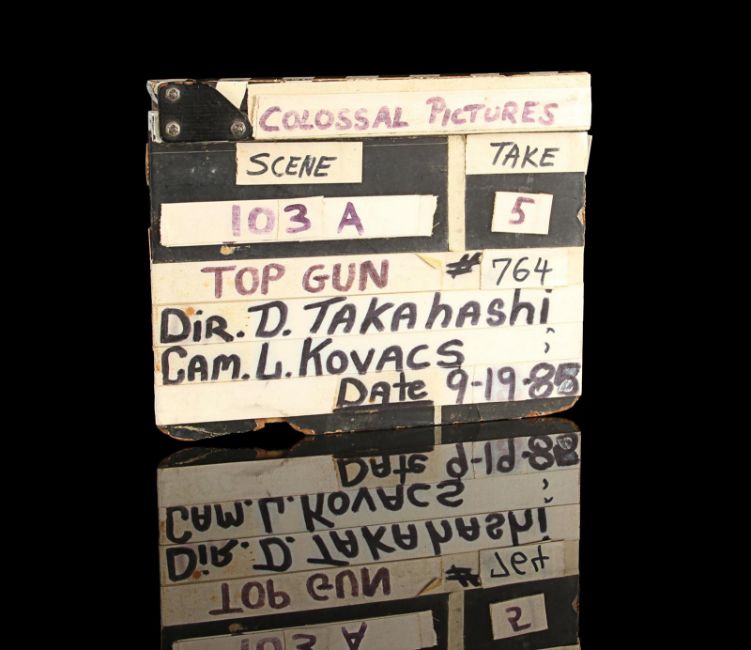 COLOSSAL PICTURES
SCENE TAKE
103 A 5
TOP GUN # 764
DIR. D. TAKAHASHI
CAM. L. KOVACS
DATE 9-19-85